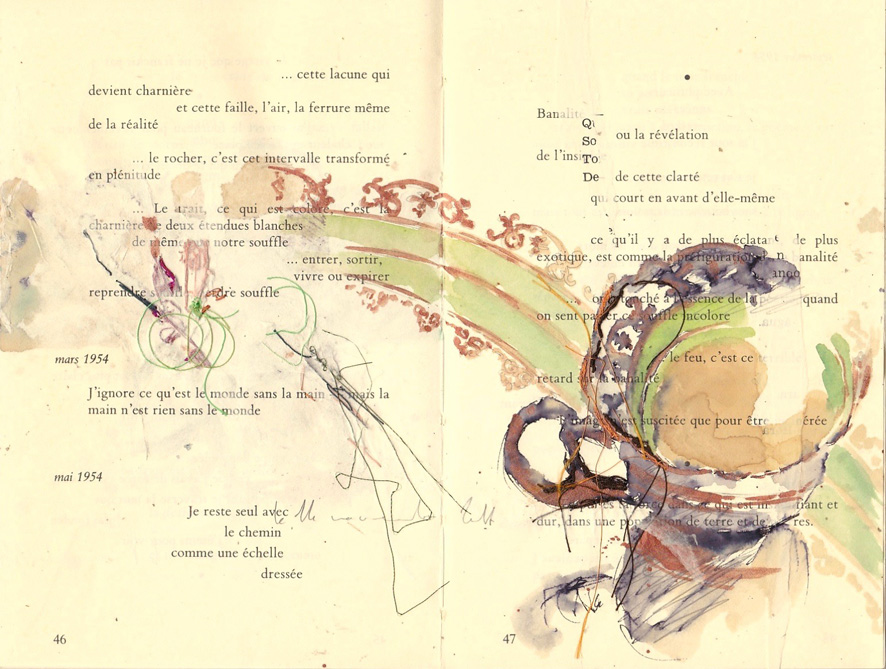 ... cette lacune qui
devient charnière
et cette faille, l'air, la ferrure même
de la réalité
... le rocher, c'est cet intervalle transformé
en plénitude
... Le trait, ce qui est coloré, c'est la
charnière de deux étendues blanches
de même que notre souffle
... entrer, sortir,
vivre ou expirer
reprendre souffle perdre souffle
mars 1954
J'ignore ce qu'est le monde sans la main mais la
main n'est rien sans le monde
mai 1954
Je reste seul avec
le chemin
comme une échelle
dressée
46
Banalité
So
ou la révélation
de
To
De
de cette clarté
qui court en avant d'elle-même
ce qu'il y a de plus éclatant de plus
exotique, est comme la préfiguration analité
... on touché à l'essence de la quand
on sent passer ce souffle incolore
le feu, c'est ce
retard sur la banalité
L'image n'est suscitée que pour être
force dans ce qui est et
dur, dans une de terre et de
47